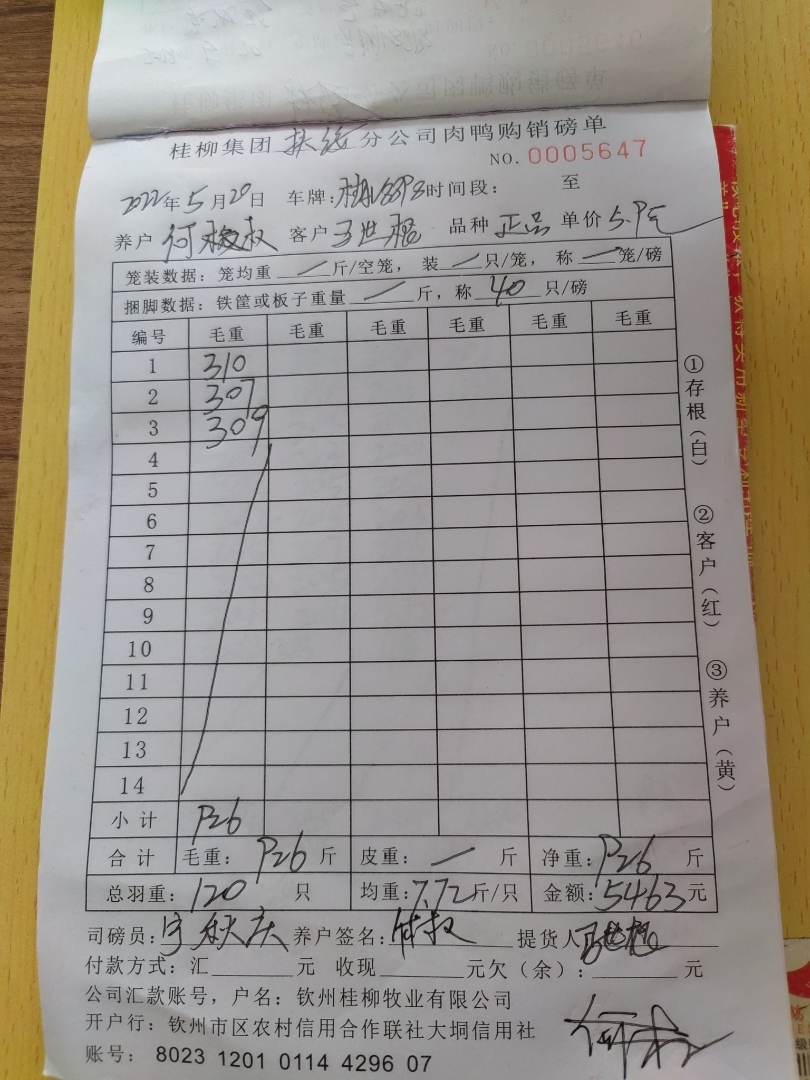 桂柳集团 分公司肉鸭购销磅单
NO. 0005647
2022年5月20日 车牌: 时间段: 至
养户 何 权 客户 王世 品种 正品 单价 5.9元
笼装数据:笼均重 一 斤/空笼,装 一 只/笼,称 一 笼/磅
捆脚数据:铁筐或板子重量 一 斤,称 40 只/磅
编号 毛重 毛重 毛重 毛重 毛重 毛重
1 310
2 307
3 309
4
5
6
7
8
9
10
11
12
13
14
小计 926
合计 毛重: 926 斤 皮重: 一 斤 净重: 926 斤
总羽重: 120 只 均重: 7.72 斤/只 金额: 5463 元
①存根(白)
②客户(红)
③养户(黄)
司磅员: 秋庆 养户签名: 提货人
付款方式:汇 元 收现 元欠(余): 元
公司汇款账号,户名:钦州桂柳牧业有限公司
开户行:钦州市区农村信用合作联社大垌信用社
账号: 8023 1201 0114 4296 07